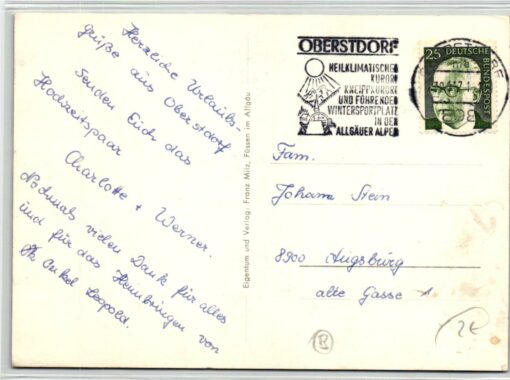 Herzliche Urlaubs-
grüße aus Oberstdorf
senden Euch das
Hochzeitspaar
Charlotte + Werner.
Nochmals vielen Dank für alles
und für das Heimbringen von
Onkel Leopold.
Eigentum und Verlag: Franz Milz, Füssen im Allgäu
OBERSTDORF
HEILKLIMATISCHER
KURORT
KNEIPPKURORT
UND FÜHRENDER
WINTERSPORTPLATZ
IN DEN
ALLGÄUER ALPEN
25
DEUTSCHE
BUNDESPOST
Fam.
Johann Stein
8900 Augsburg
alte Gasse
B
2€